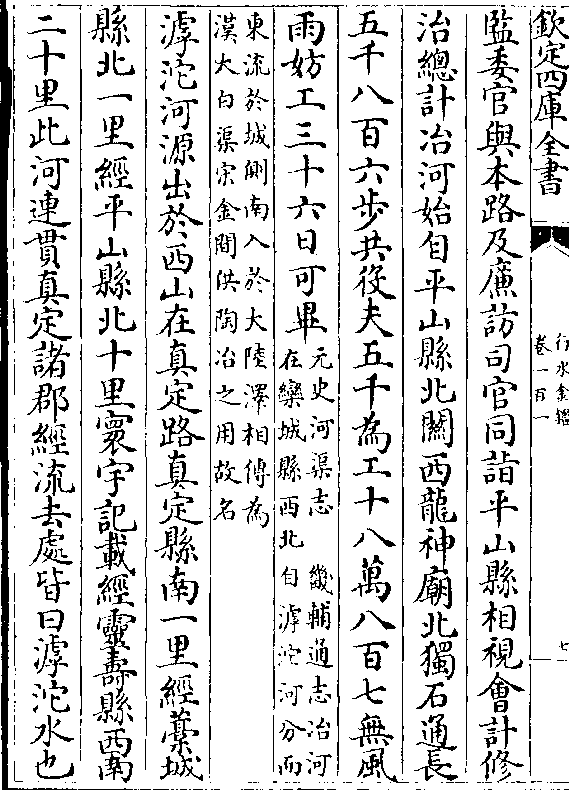 欽定四庫全書
行水金鑑
卷一百一
七
監委官與本路及廉訪司官同詣平山縣相視會計修
治總計冶河始自平山縣北關西龍神廟北獨石通長
五千八百六步共役夫五千為工十八萬八百七無風
雨妨工三十六日可畢
元史河渠志 畿輔通志冶河
在欒城縣西北自滹沱河分而
東流於城側南入於大陸澤相傳為
漢大白渠宋金間供陶冶之用故名
滹沱河源出於西山在真定路真定縣南一里經藁城
縣北一里經平山縣北十里寰宇記載經靈壽縣西南
二十里此河連貫真定諸郡經流去處皆曰滹沱水也